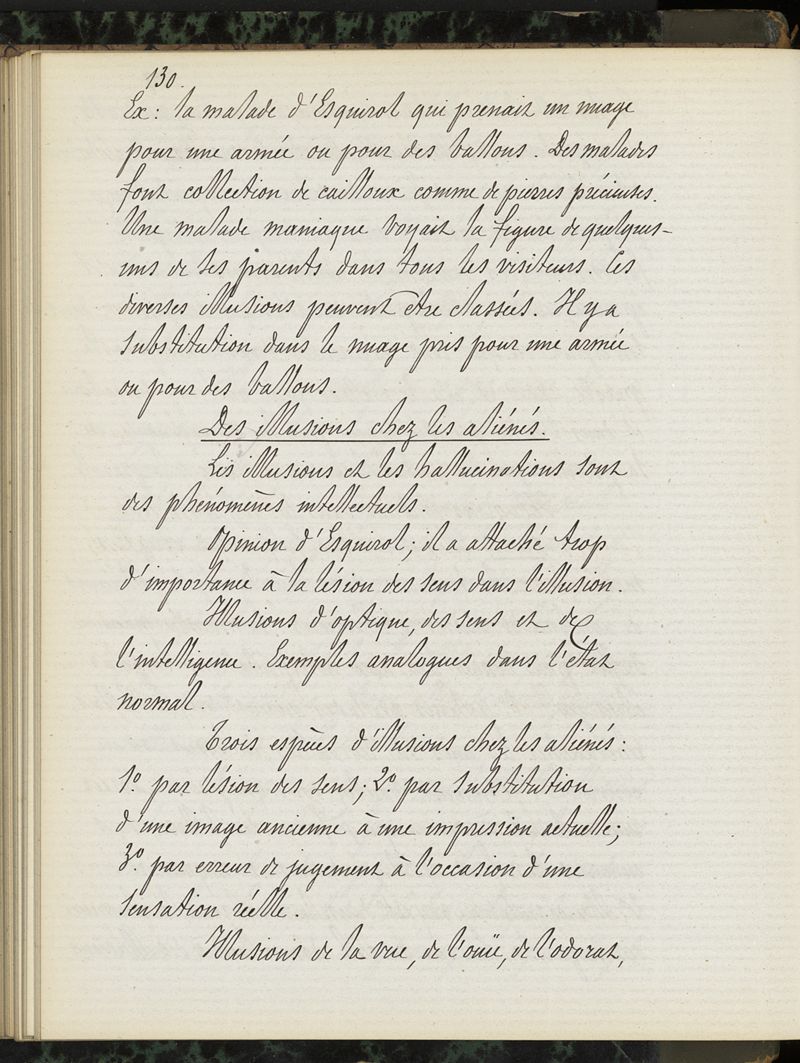 130.
Ex: la malade d'Esquirol qui prenait un nuage
pour une armée ou pour des ballons. Des malades
font collection de cailloux comme de pierres précieuses.
Une malade maniaque voyait la figure de quelques-
uns de ses parents dans tous les visiteurs. Ces
diverses illusions peuvent être classées. Il y a
substitution dans le nuage pris pour une armée
ou pour des ballons.
Des illusions chez les aliénés.
Les illusions et les hallucinations sont
des phénomènes intellectuels.
Opinion d'Esquirol; il a attaché trop
d'importance à la lésion des sens dans l'illusion.
Illusions d'optique, des sens et de
l'intelligence. Exemples analogues dans l'état
normal.
Trois espèces d'illusions chez les aliénés:
1º. par lésion des sens; 2º. par substitution
d'une image ancienne à une impression actuelle;
3º. par erreur de jugement à l'occasion d'une
sensation réelle.
Illusions de la vue, de l'ouïe, de l'odorat,